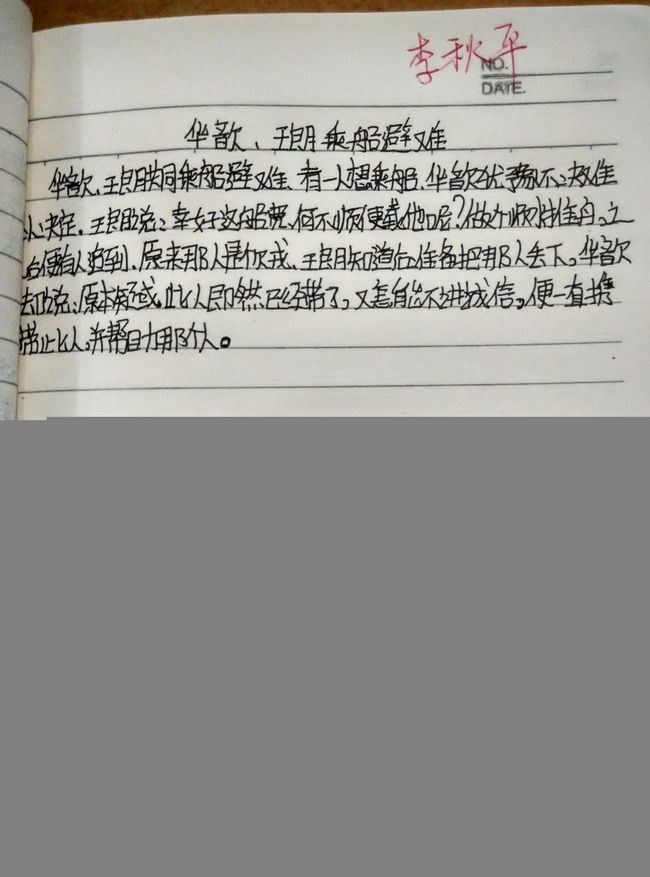 李秋平
NO.
DATE.
华歆、王朗乘船避难
华歆、王朗共同乘船避难、有一人想乘船、华歆犹豫不决难
以决定、王朗说：幸好这船宽、何不顺便载他呢？做个顺水推舟。之
后便有人追到、原来那人是个贼、王朗知道后准备把那人丢下。华歆
却说：原本疑惑、此人即然已经带了、又怎能不讲诚信。便一直携
带此人、并帮助那个人。